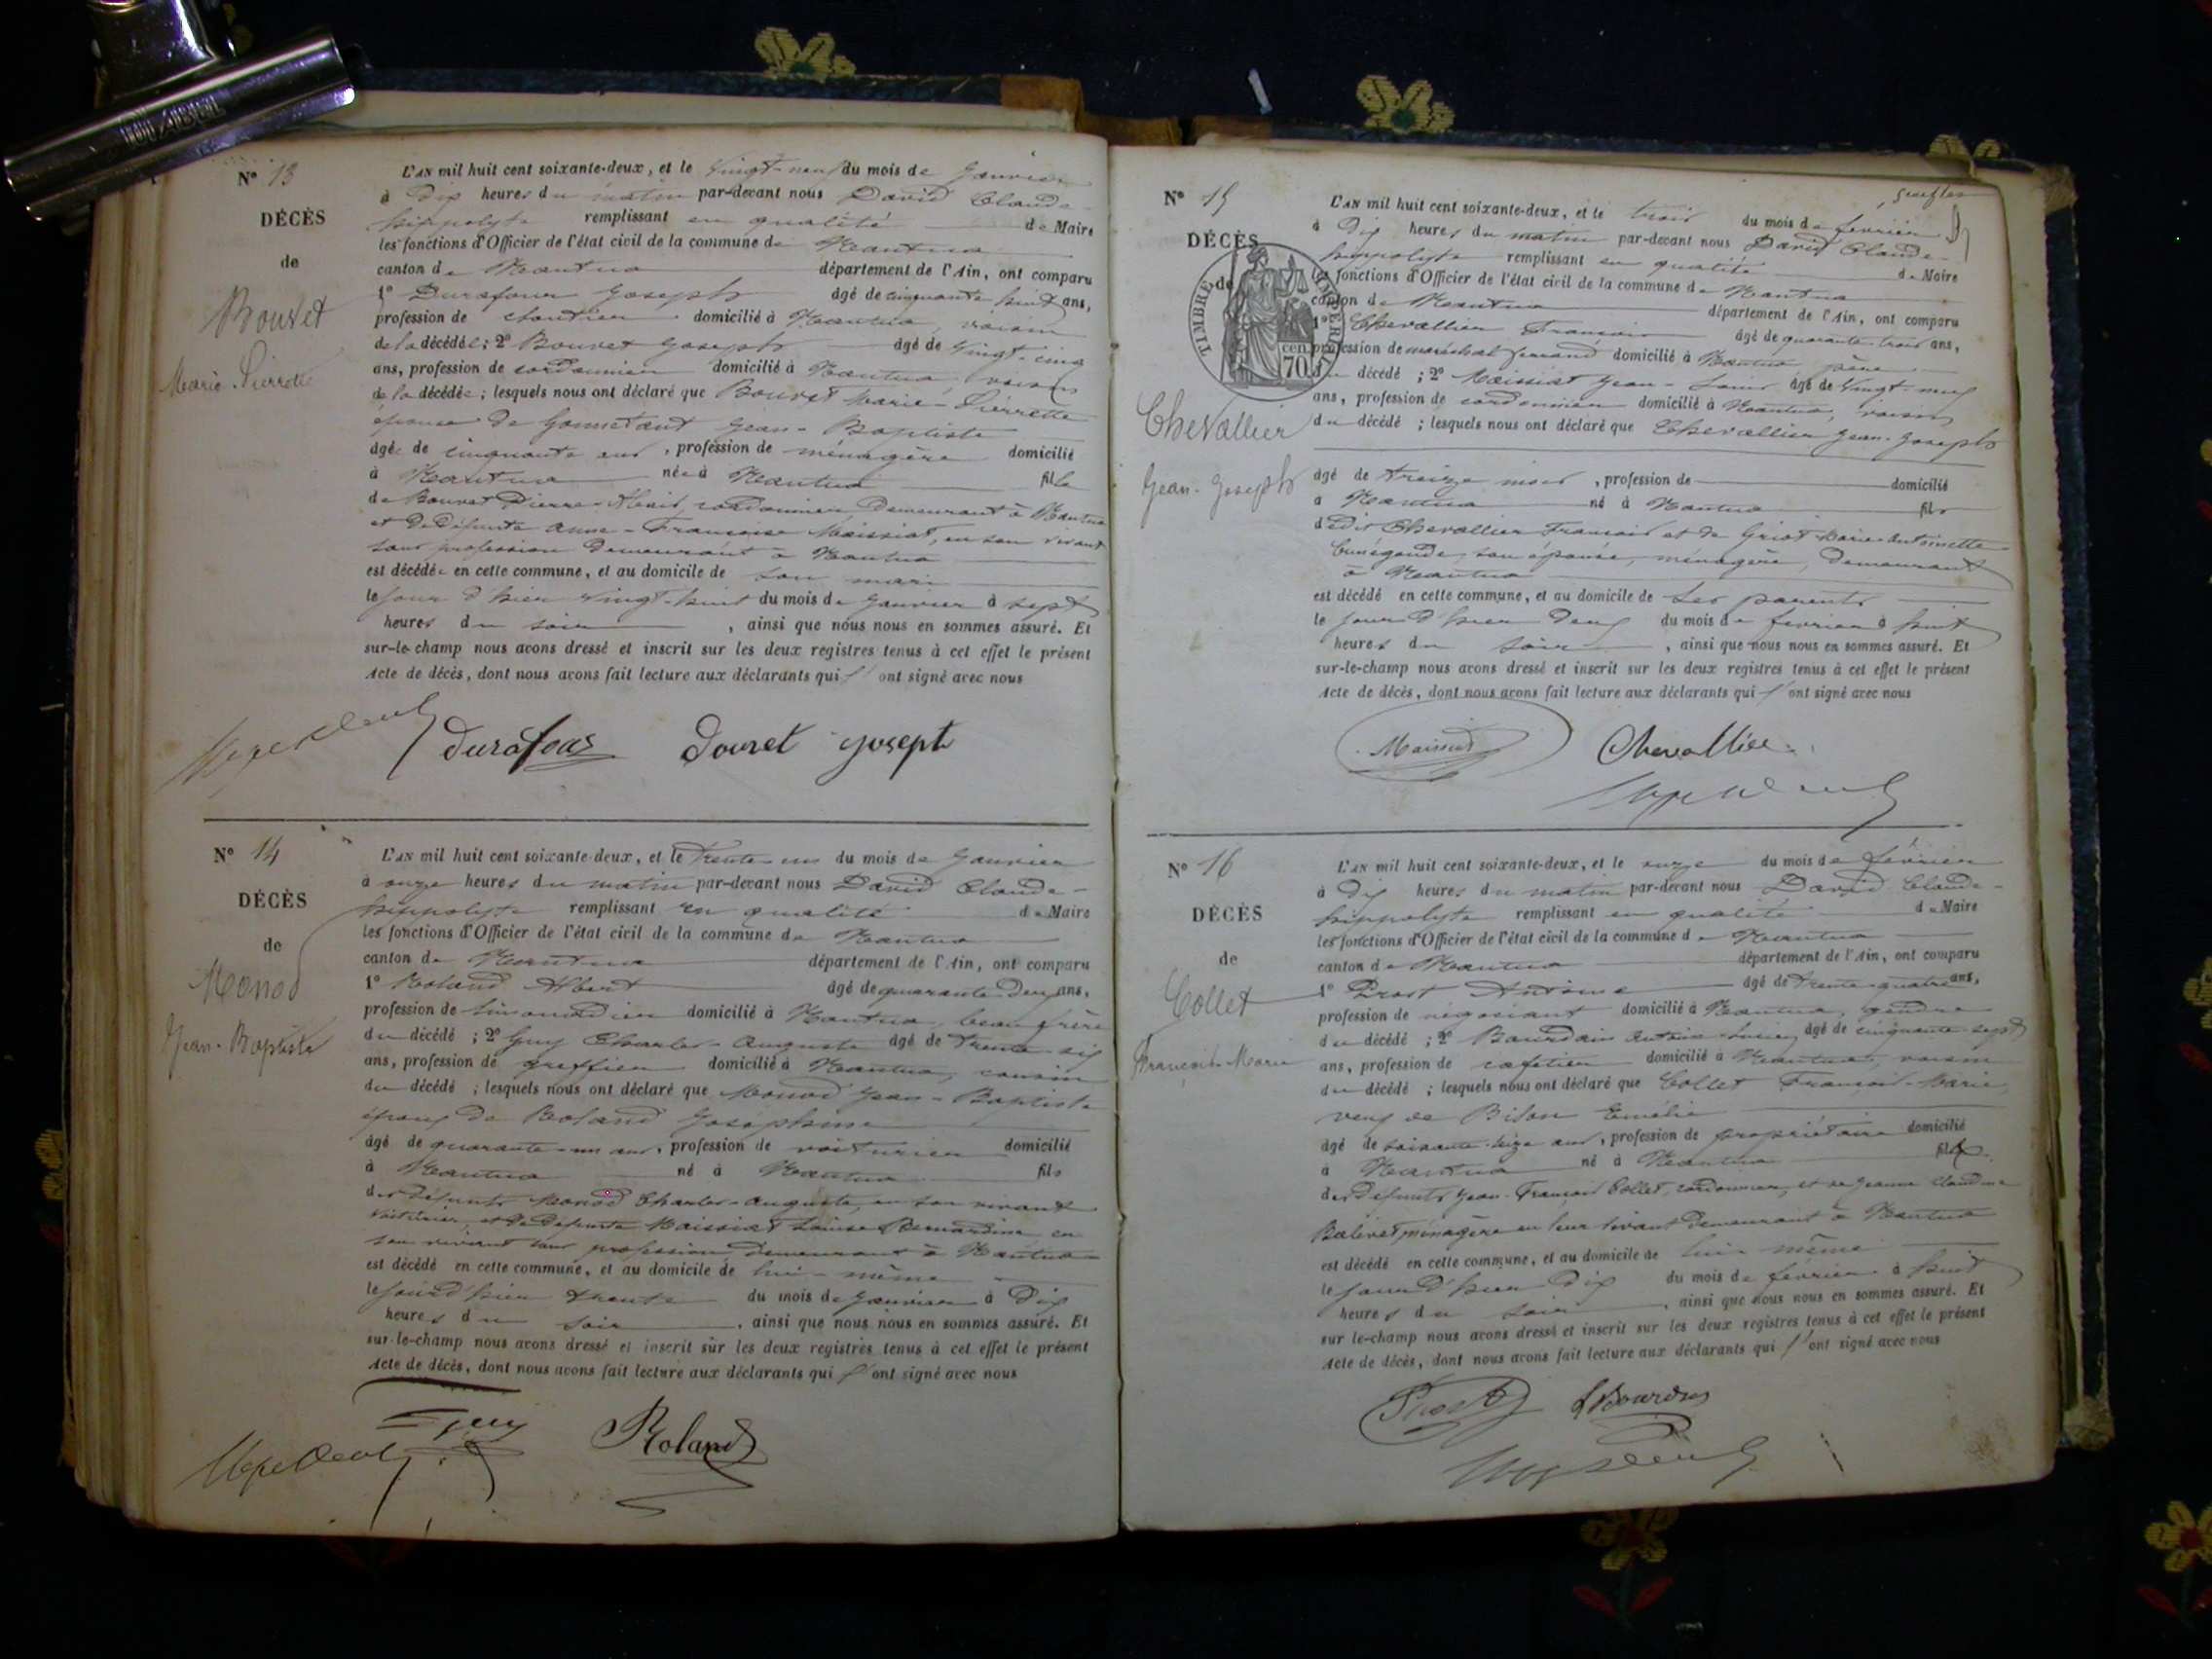 N° 13
DÉCÈS
de
Bouvet
Marie-Pierrette
L'AN mil huit cent soixante-deux, et le vingt-neuf du mois de Janvier
à dix heures du matin par-devant nous David Claude-
hippolyte remplissant en qualité de Maire
les fonctions d'Officier de l'état civil de la commune de Nantua
canton de Nantua département de l'Ain, ont comparu
1° Durafour Joseph âgé de cinquante huit ans,
profession de domicilié à Nantua, voisin
de la décédée ; 2° Bouvet Joseph âgé de vingt-cinq
ans, profession de cordonnier domicilié à Nantua, voisin
de la décédée ; lesquels nous ont déclaré que Bouvet Marie-Pierrette
épouse de Gonnetant Jean-Baptiste
âgée de cinquante ans, profession de ménagère domicilié
à Nantua née à Nantua fille
de Bouvet Pierre cordonnier demeurant à Nantua
et de défunte Anne-Françoise Maissiat, en son vivant
sans profession demeurant à Nantua
est décédée en cette commune, et au domicile de son mari
le jour d'hier vingt-huit du mois de Janvier à sept
heures du soir, ainsi que nous nous en sommes assuré. Et
sur-le-champ nous avons dressé et inscrit sur les deux registres tenus à cet effet le présent
Acte de décès, dont nous avons fait lecture aux déclarants qui l' ont signé avec nous
Durafour Bouvet Joseph
N° 14
DÉCÈS
de
Monod
Jean-Baptiste
L'AN mil huit cent soixante-deux, et le trente-un du mois de Janvier
à onze heures du matin par-devant nous David Claude-
hippolyte remplissant en qualité de Maire
les fonctions d'Officier de l'état civil de la commune de Nantua
canton de Nantua département de l'Ain, ont comparu
1° Roland Albert âgé de quarante-deux ans,
profession de limonadier domicilié à Nantua, beau frère
du décédé ; 2° Guy Charles-Auguste âgé de trente-six
ans, profession de greffier domicilié à Nantua, cousin
du décédé ; lesquels nous ont déclaré que Monod Jean-Baptiste
époux de Roland Joséphine
âgé de quarante-un ans, profession de voiturier domicilié
à Nantua né à Nantua fils
des défunts Monod Charles-Auguste, en son vivant
voiturier, et de défunte Maissiat Louise Bernardine en
son vivant sans profession demeurant à Nantua
est décédé en cette commune, et au domicile de lui-même
le jour d'hier trente du mois de Janvier à dix
heures du soir, ainsi que nous nous en sommes assuré. Et
sur-le-champ nous avons dressé et inscrit sur les deux registres tenus à cet effet le présent
Acte de décès, dont nous avons fait lecture aux déclarants qui l' ont signé avec nous
Guy Roland
N° 15
DÉCÈS
de
TIMBRE IMPÉRIAL
70 cen.
Chevallier
Jean-Joseph
L'AN mil huit cent soixante-deux, et le trois du mois de février
à dix heures du matin par-devant nous David Claude-
hippolyte remplissant en qualité de Maire
les fonctions d'Officier de l'état civil de la commune de Nantua
canton de Nantua département de l'Ain, ont comparu
1° Chevallier François âgé de quarante-trois ans,
profession de maréchal ferrand domicilié à Nantua père
du décédé ; 2° Maissiat Jean-Louis âgé de vingt-neuf
ans, profession de cordonnier domicilié à Nantua, voisin
du décédé ; lesquels nous ont déclaré que Chevallier Jean-Joseph
âgé de treize mois, profession de domicilié
à Nantua né à Nantua fils
dedit Chevallier François et de Griot Marie Antoinette
Cunégonde, son épouse, ménagère, demeurant
à Nantua
est décédé en cette commune, et au domicile de ses parents
le jour d'hier deux du mois de février à huit
heures du soir, ainsi que nous nous en sommes assuré. Et
sur-le-champ nous avons dressé et inscrit sur les deux registres tenus à cet effet le présent
Acte de décès, dont nous avons fait lecture aux déclarants qui l' ont signé avec nous
Maissiat Chevallier
N° 16
DÉCÈS
de
Collet
François-Marie
L'AN mil huit cent soixante-deux, et le onze du mois de février
à dix heures du matin par-devant nous David Claude-
hippolyte remplissant en qualité de Maire
les fonctions d'Officier de l'état civil de la commune de Nantua
canton de Nantua département de l'Ain, ont comparu
1° Prost Antoine âgé de trente-quatre ans,
profession de négociant domicilié à Nantua, gendre
du décédé ; 2° Bourdain Antoine Lucien, âgé de cinquante sept
ans, profession de cafetier domicilié à Nantua, voisin
du décédé ; lesquels nous ont déclaré que Collet François-Marie
veuf de Bilon Emélie
âgé de soixante-seize ans, profession de propriétaire domicilié
à Nantua né à Nantua fils
des défunts Jean-François Collet, cordonnier, et de Jeanne Claudine
Balivet ménagère en leur vivant demeurant à Nantua
est décédé en cette commune, et au domicile de lui-même
le jour d'hier dix du mois de février à huit
heures du soir, ainsi que nous nous en sommes assuré. Et
sur le-champ nous avons dressé et inscrit sur les deux registres tenus à cet effet le présent
Acte de décès, dont nous avons fait lecture aux déclarants qui l' ont signé avec nous
Prost Bourdin